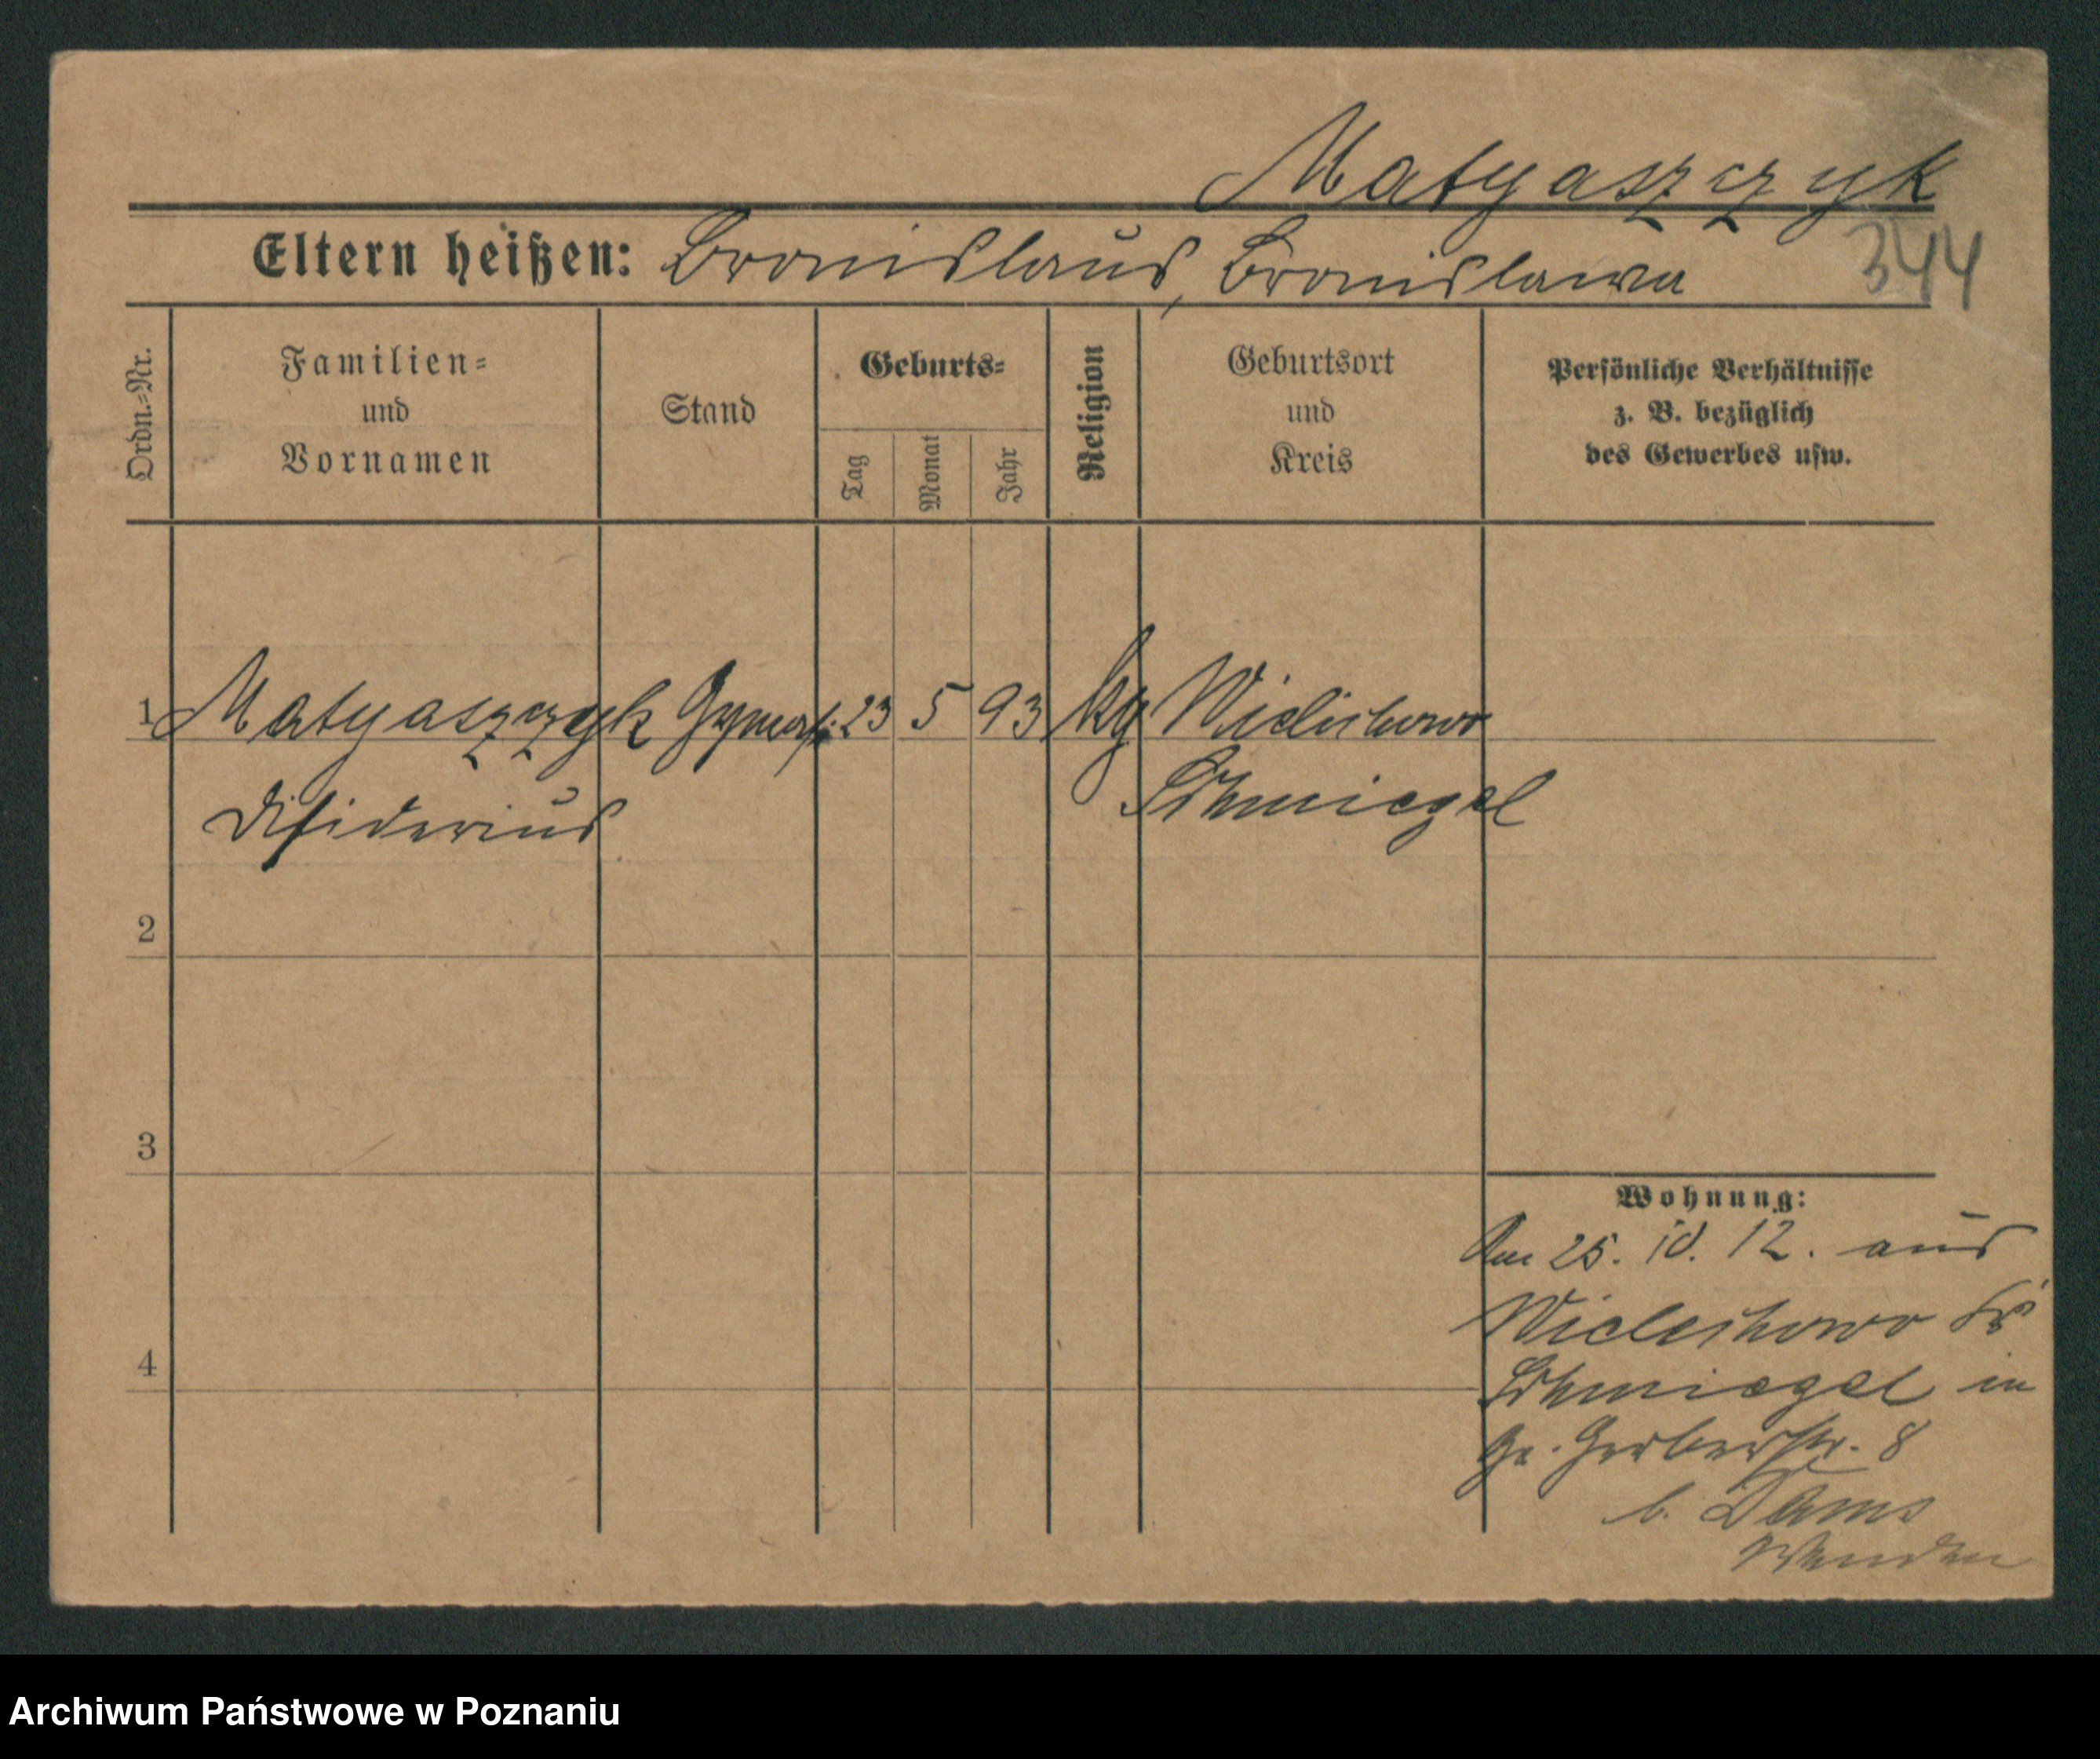 Matyaszczyk
Eltern heißen: Bronislaus, Bronislawa
344
Ordn.-Nr.
Familien-
und
Vornamen
Stand
Geburts-
Tag
Monat
Jahr
Religion
Geburtsort
und
Kreis
Persönliche Verhältnisse
z. B. bezüglich
des Gewerbes usw.
1 Matyaszczyk 23 5 93 Wielichowo
Schmiegel
Desiderius
2
3
Wohnung:
Am 25. 10. 12. aus
Wielichowo Kr
4
Schmiegel in
Gr. Gerberstr. 8
b. Dams
Wenden
Archiwum Państwowe w Poznaniu